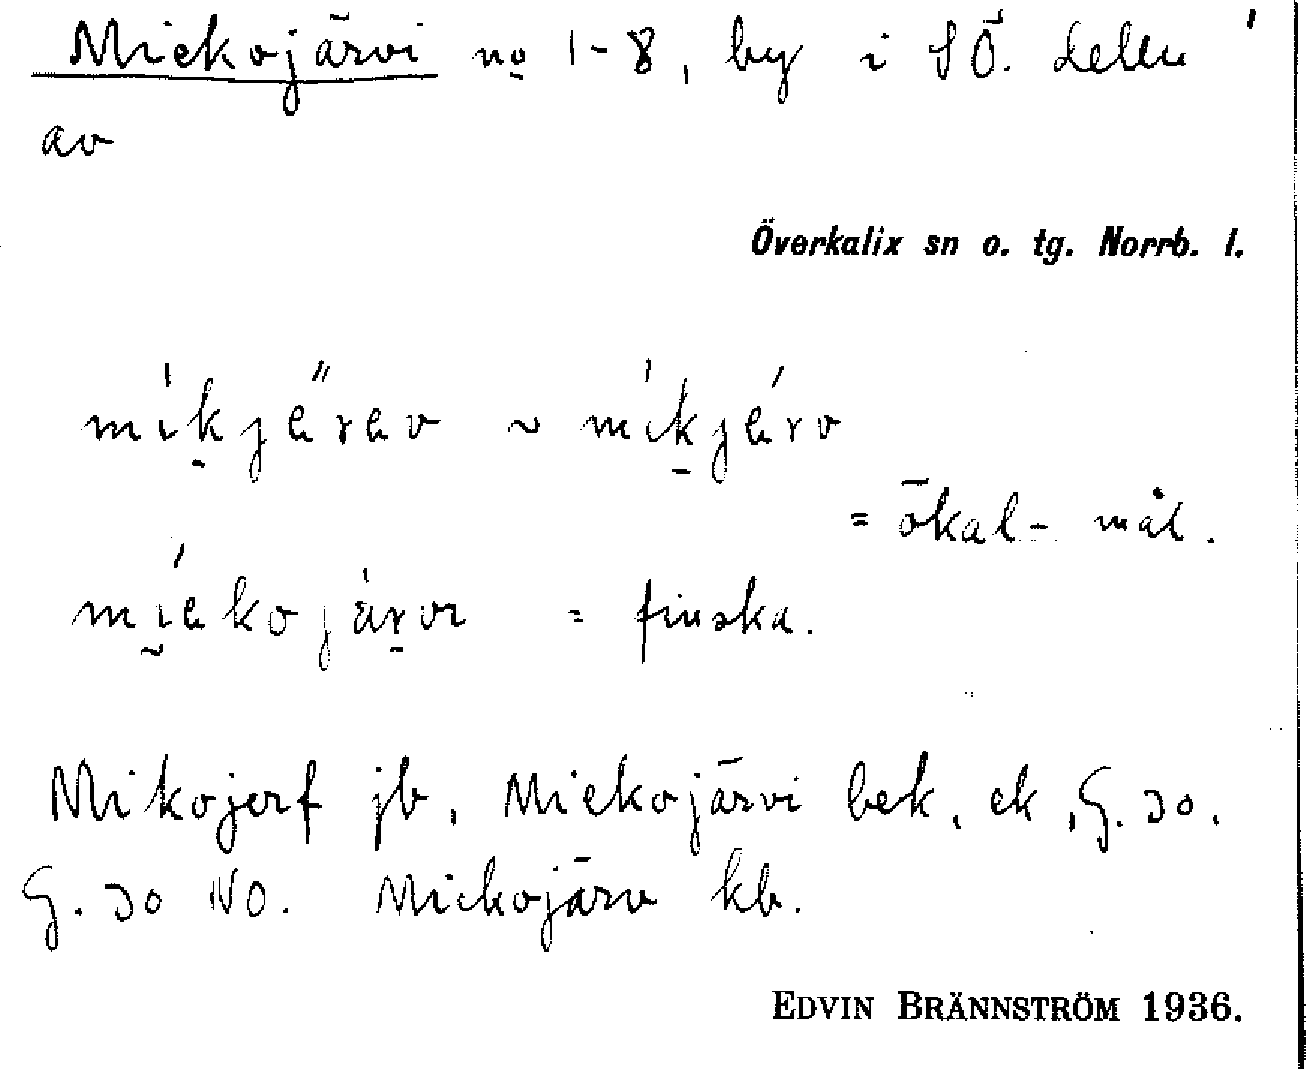 Miekojärvi no 1-8, by i SÖ. delen
av
Överkalix sn o. tg. Norrb. l.
míkjä̋rav ~ míkjárv
= ökal- mål.
míekojàrvi = finska.
Mikojerf jb, Miekojärvi bek, ek, G. 30.
G. 30 NO. Miekojärv kb.
EDVIN BRÄNNSTRÖM 1936.